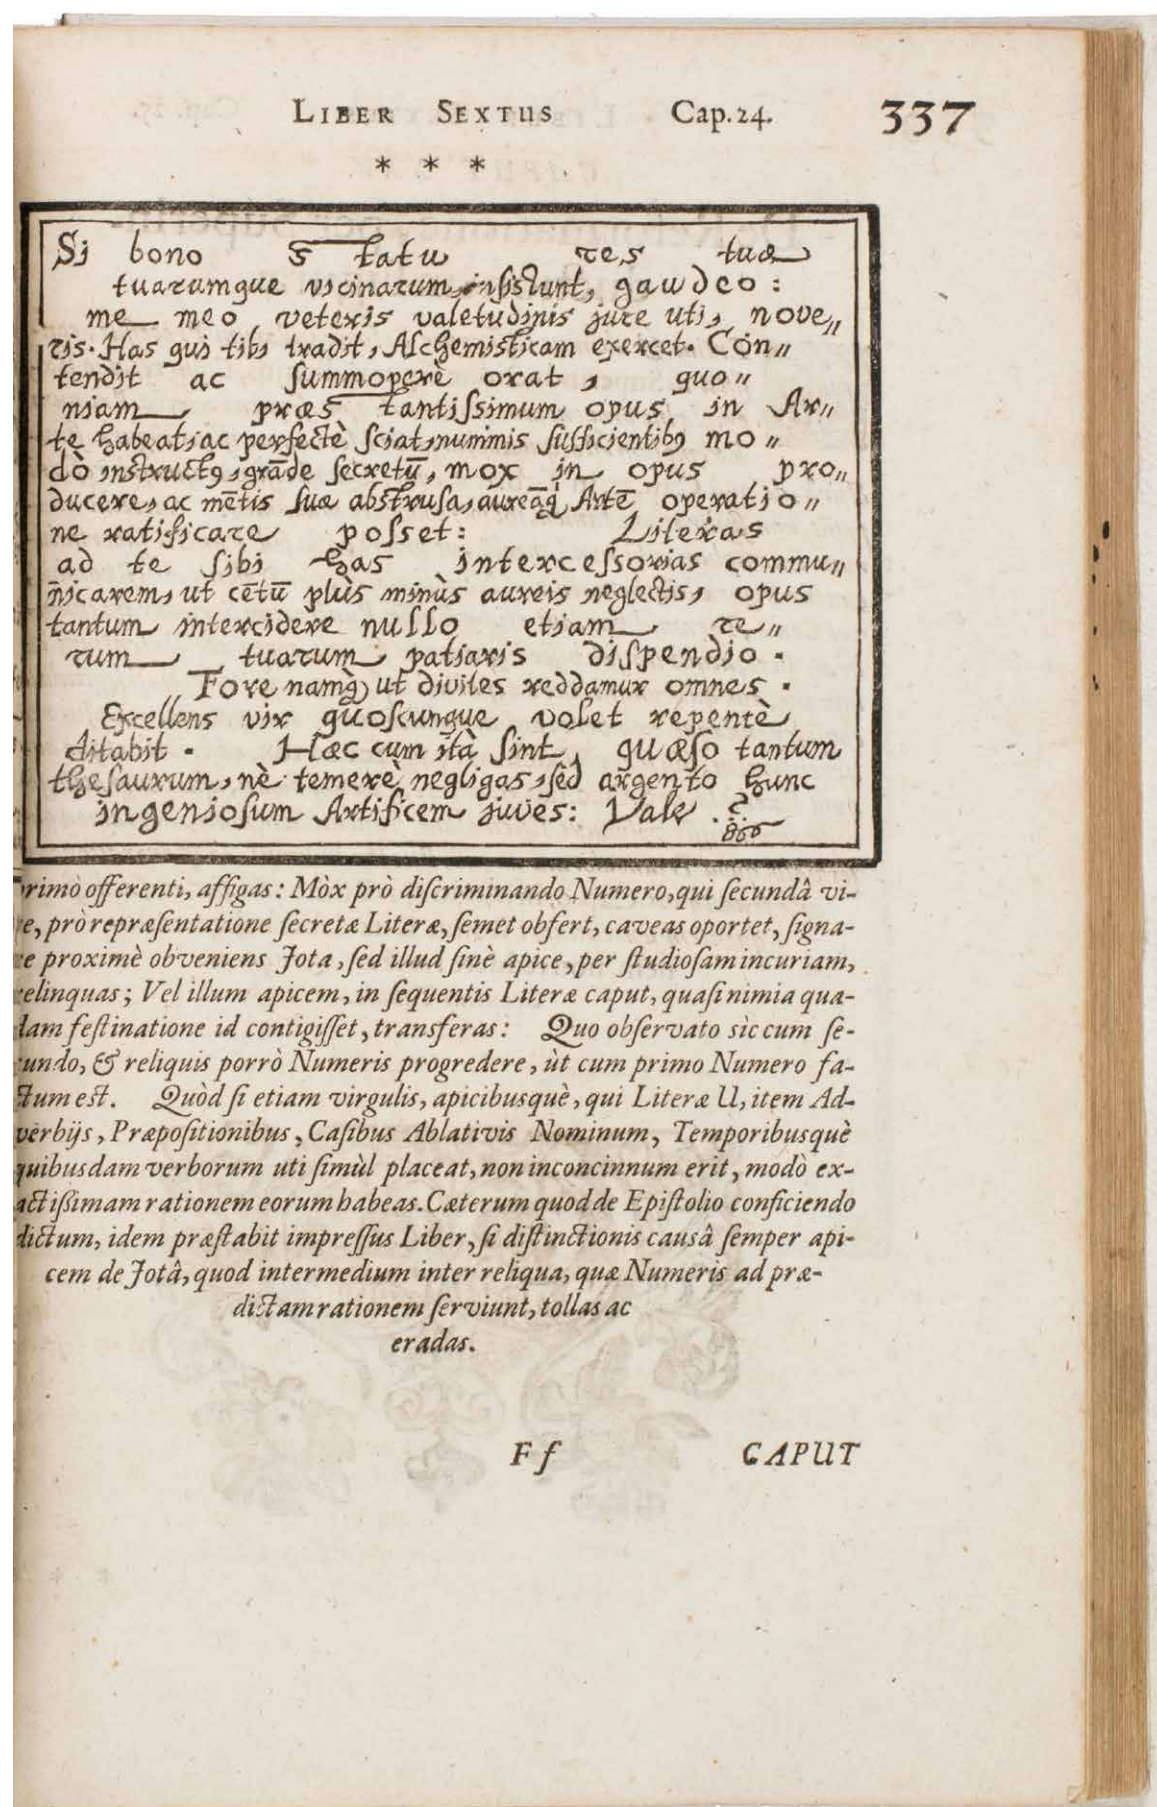 LIBER SEXTUS Cap. 24. 337
* * *
Si bono statu res tuæ
tuarumque vicinarum, insistunt, gaudeo:
me meo veteris valetudinis jure uti, nove〃
ris. Has qui tibi tradit, Alchemisticam exercet. Con〃
tendit ac summoperè orat, quo〃
niam præstantiſsimum opus in Ar〃
te habeat, ac perfectè ſciat, nummis ſufficientibꝯ mo〃
dò inſtructꝯ, grāde ſecretū, mox in opus pro〃
ducere, ac mētis ſuæ abſtruſa, aureāq́ꝫ Artē operatio〃
ne ratificare poſset: Literas
ad te ſibi has interceſsorias commu〃
nicarem, ut cētū plùs minùs aureis neglectis, opus
tantum intercidere nullo etiam re〃
rum tuarum patiaris diſpendio.
Fore namq́ꝫ ut divites reddamur omnes.
Excellens vir quoſcunque volet repentè
ditabit. Hæc cum ità ſint, quæſo tantum
theſaurum, nè temerè negligas, ſed argento hunc
ingenioſum Artificem juves: Vale.
rimò offerenti, affigas: Mòx prò diſcriminando Numero, qui ſecundâ vi-
e, prò repræſentatione ſecretæ Literæ, ſemet obfert, caveas oportet, ſigna-
e proximè obveniens Jota, ſed illud ſinè apice, per ſtudioſam incuriam,
elinquas; Vel illum apicem, in ſequentis Literæ caput, quaſi nimia qua-
dam feſtinatione id contigiſſet, transferas: Quo obſervato sìc cum ſe-
cundo, & reliquis porrò Numeris progredere, ùt cum primo Numero fa-
ctum est. Quòd ſi etiam virgulis, apicibusquè, qui Literæ U, item Ad-
verbijs, Præpoſitionibus, Caſibus Ablativis Nominum, Temporibusquè
quibusdam verborum uti ſimùl placeat, non inconcinnum erit, modò ex-
actiſsimam rationem eorum habeas. Cæterum quod de Epiſtolio conficiendo
dictum, idem præſtabit impreſſus Liber, ſi diſtinctionis causâ ſemper api-
cem de Jotâ, quod intermedium inter reliqua, quæ Numeris ad præ-
dictam rationem ſerviunt, tollas ac
eradas.
Ff CAPUT